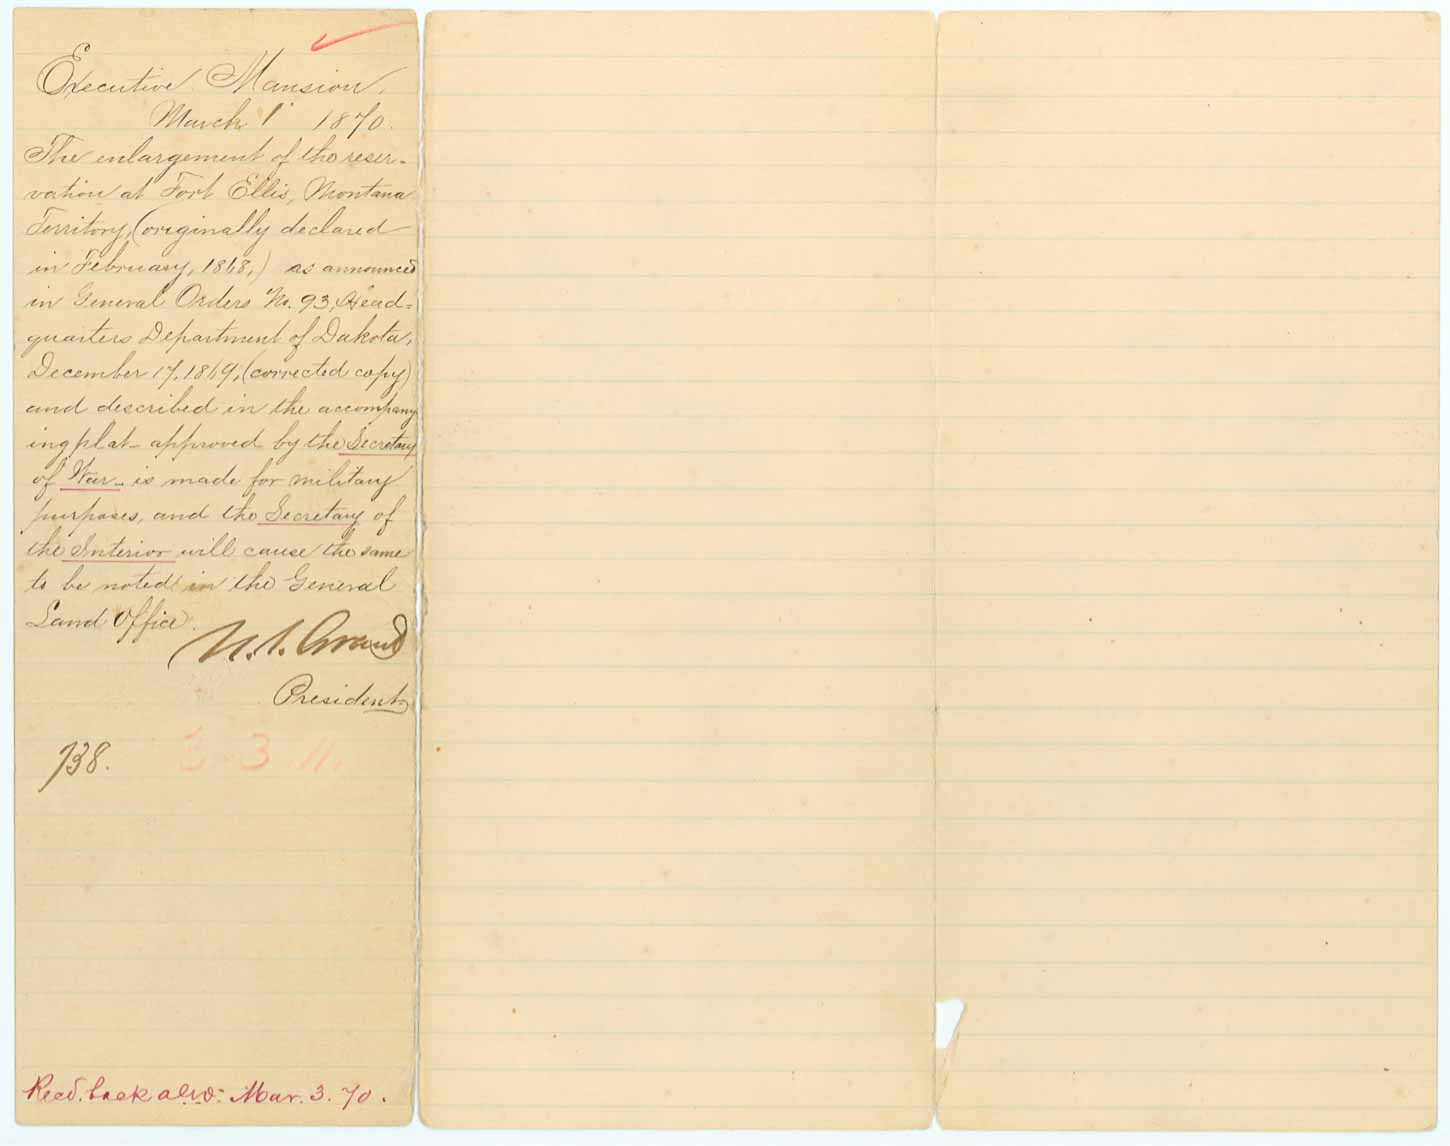 Executive Mansion,
March 1 1870.
The enlargement of the reser-
vation at Fort Ellis, Montana
Territory, (originally declared
in February, 1868,) as announced
in General Orders No. 93, Head-
quarters Department of Dakota,
December 17, 1869, (corrected copy)
and described in the accompany
ing plat_ approved by the Secretary
of War_ is made for military
purposes, and the Secretary of
the Interior will cause the same
to be noted in the General
Land Office.
U. S. Grant
President
738.
3. 3 11.
Recd. back Mar. 3. 70.